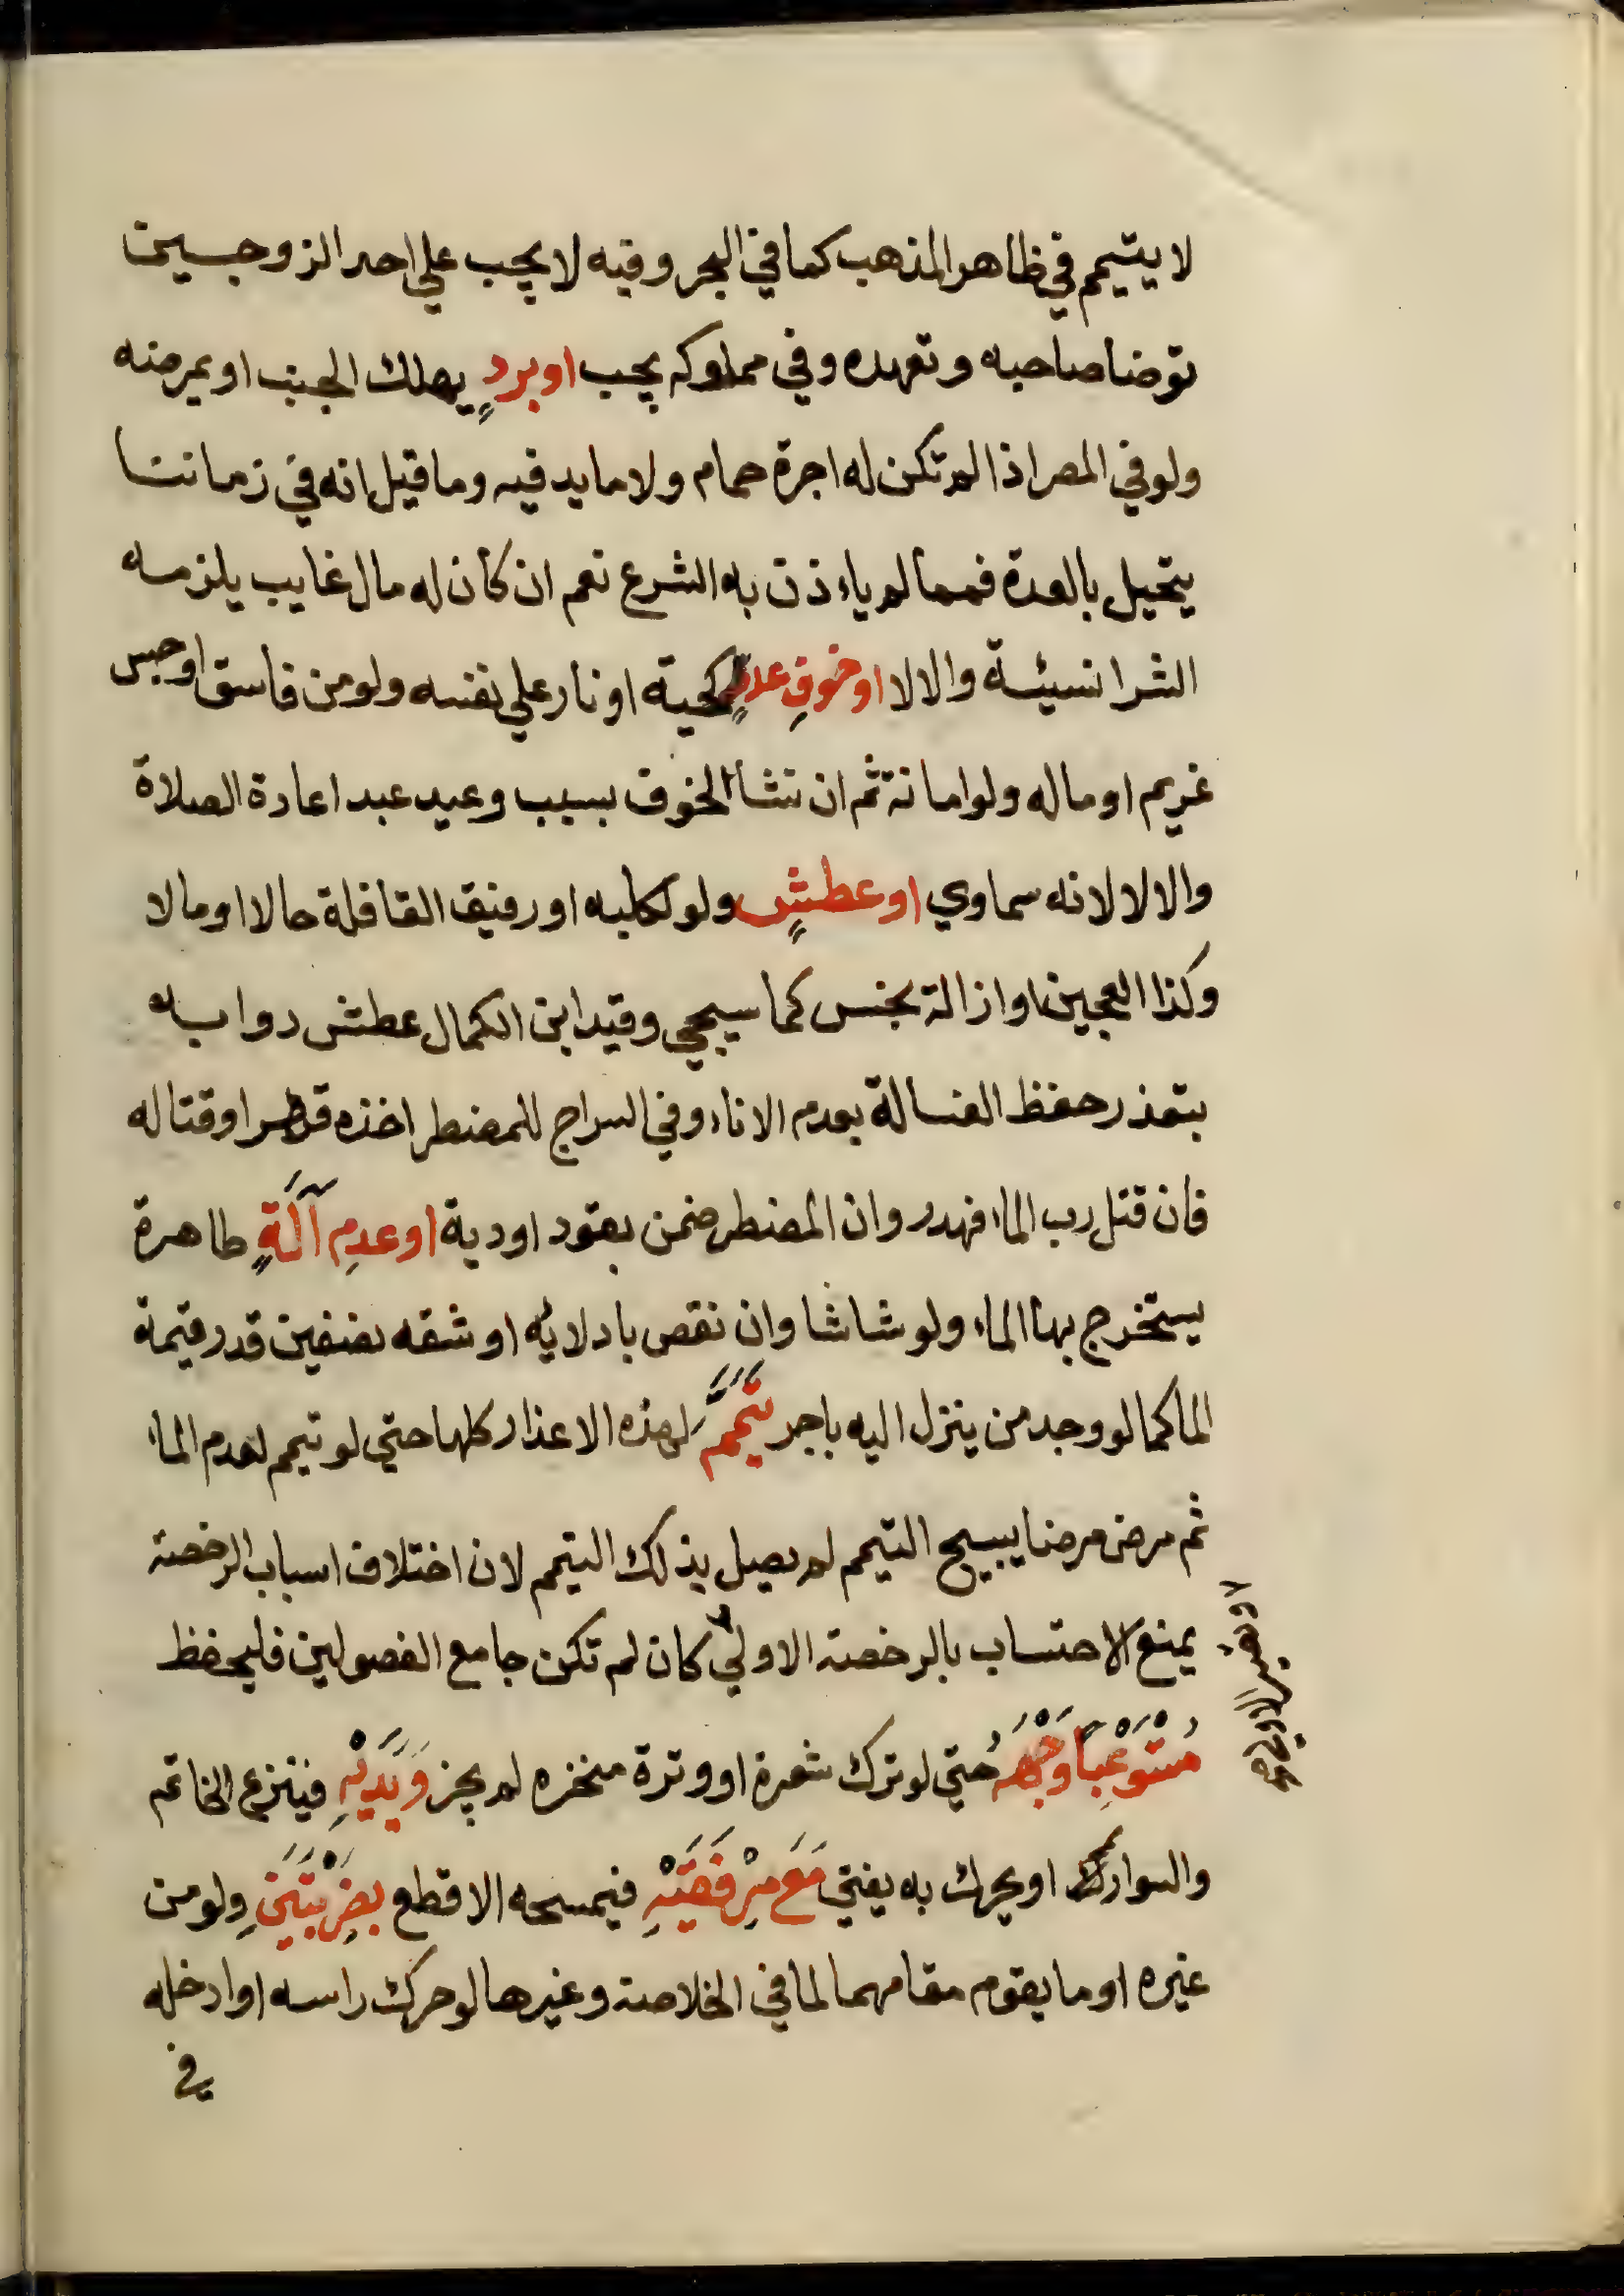 لا يتيمم في ظاهر المذهب كما في البحر وفيه لا يجب علي احد الزوجين
توضا صاحبه وتعهده وفي مملوكه يجب او بردٍ يهلك الجنب او يمرضه
ولو في المصر اذا لم تكن له اجرة حمام ولا ما يدفيه وما قيل انه في زماننا
يتحيل بالعدة فمما لم ياءذن به الشرع نعم ان كان له مال غايب يلزمه
الشرا نسيئة والا لا او خوفِ عدوٍ كحية او نار علي نفسه ولو من فاسق او حبس
غريم او ماله ولو امانة ثم ان نشأ الخوف بسبب وعيد عبد اعادة الصلاة
والا لا لانه سماوي او عطشٍ ولو لكلبه او رفيق القافلة حالا او مالا
وكذا العجين او ازالة نجس كما سيجي وقيد ابن الكمال عطش دوابه
بتعذر حفظ الغسالة بعدم الاناء وفي السراج للمضطر اخذه قهرا وقتاله
فان قتل رب الماء فهدر وان المضطر ضمن بقود او دية او عدمِ آلَةٍ طاهرة
يستخرج بها الماء ولو شاشا وان نقص بادلائه او شقه نصفين قدر قيمة
الما كما لو وجد من ينزل اليه باجر تَيَمَّمَ لهذه الاعذار كلها حتي لو تيمم لعدم الماء
ثم مرض مرضا يبيح التيمم لم يصل بذلك التيمم لان اختلاف اسباب الرخصة
يمنع الاحتساب بالرخصة الاولي كان لم تكن جامع الفصولين فليحفظ
مُسْتَوْعِباً وَجْهَهُ حتي لو ترك شعرة او وترة منخره لم يجز وَيَدَيْهِ فينزع الخاتم
والسوار او يحرك به يفتي مَعَ مِرْفَقَيْهِ فيمسحه الاقطع بضَرْبَتَيَنِ ولو من
غيره او ما يقوم مقامهما لما في الخلاصة وغيرها لو حرك راسه او ادخله
في